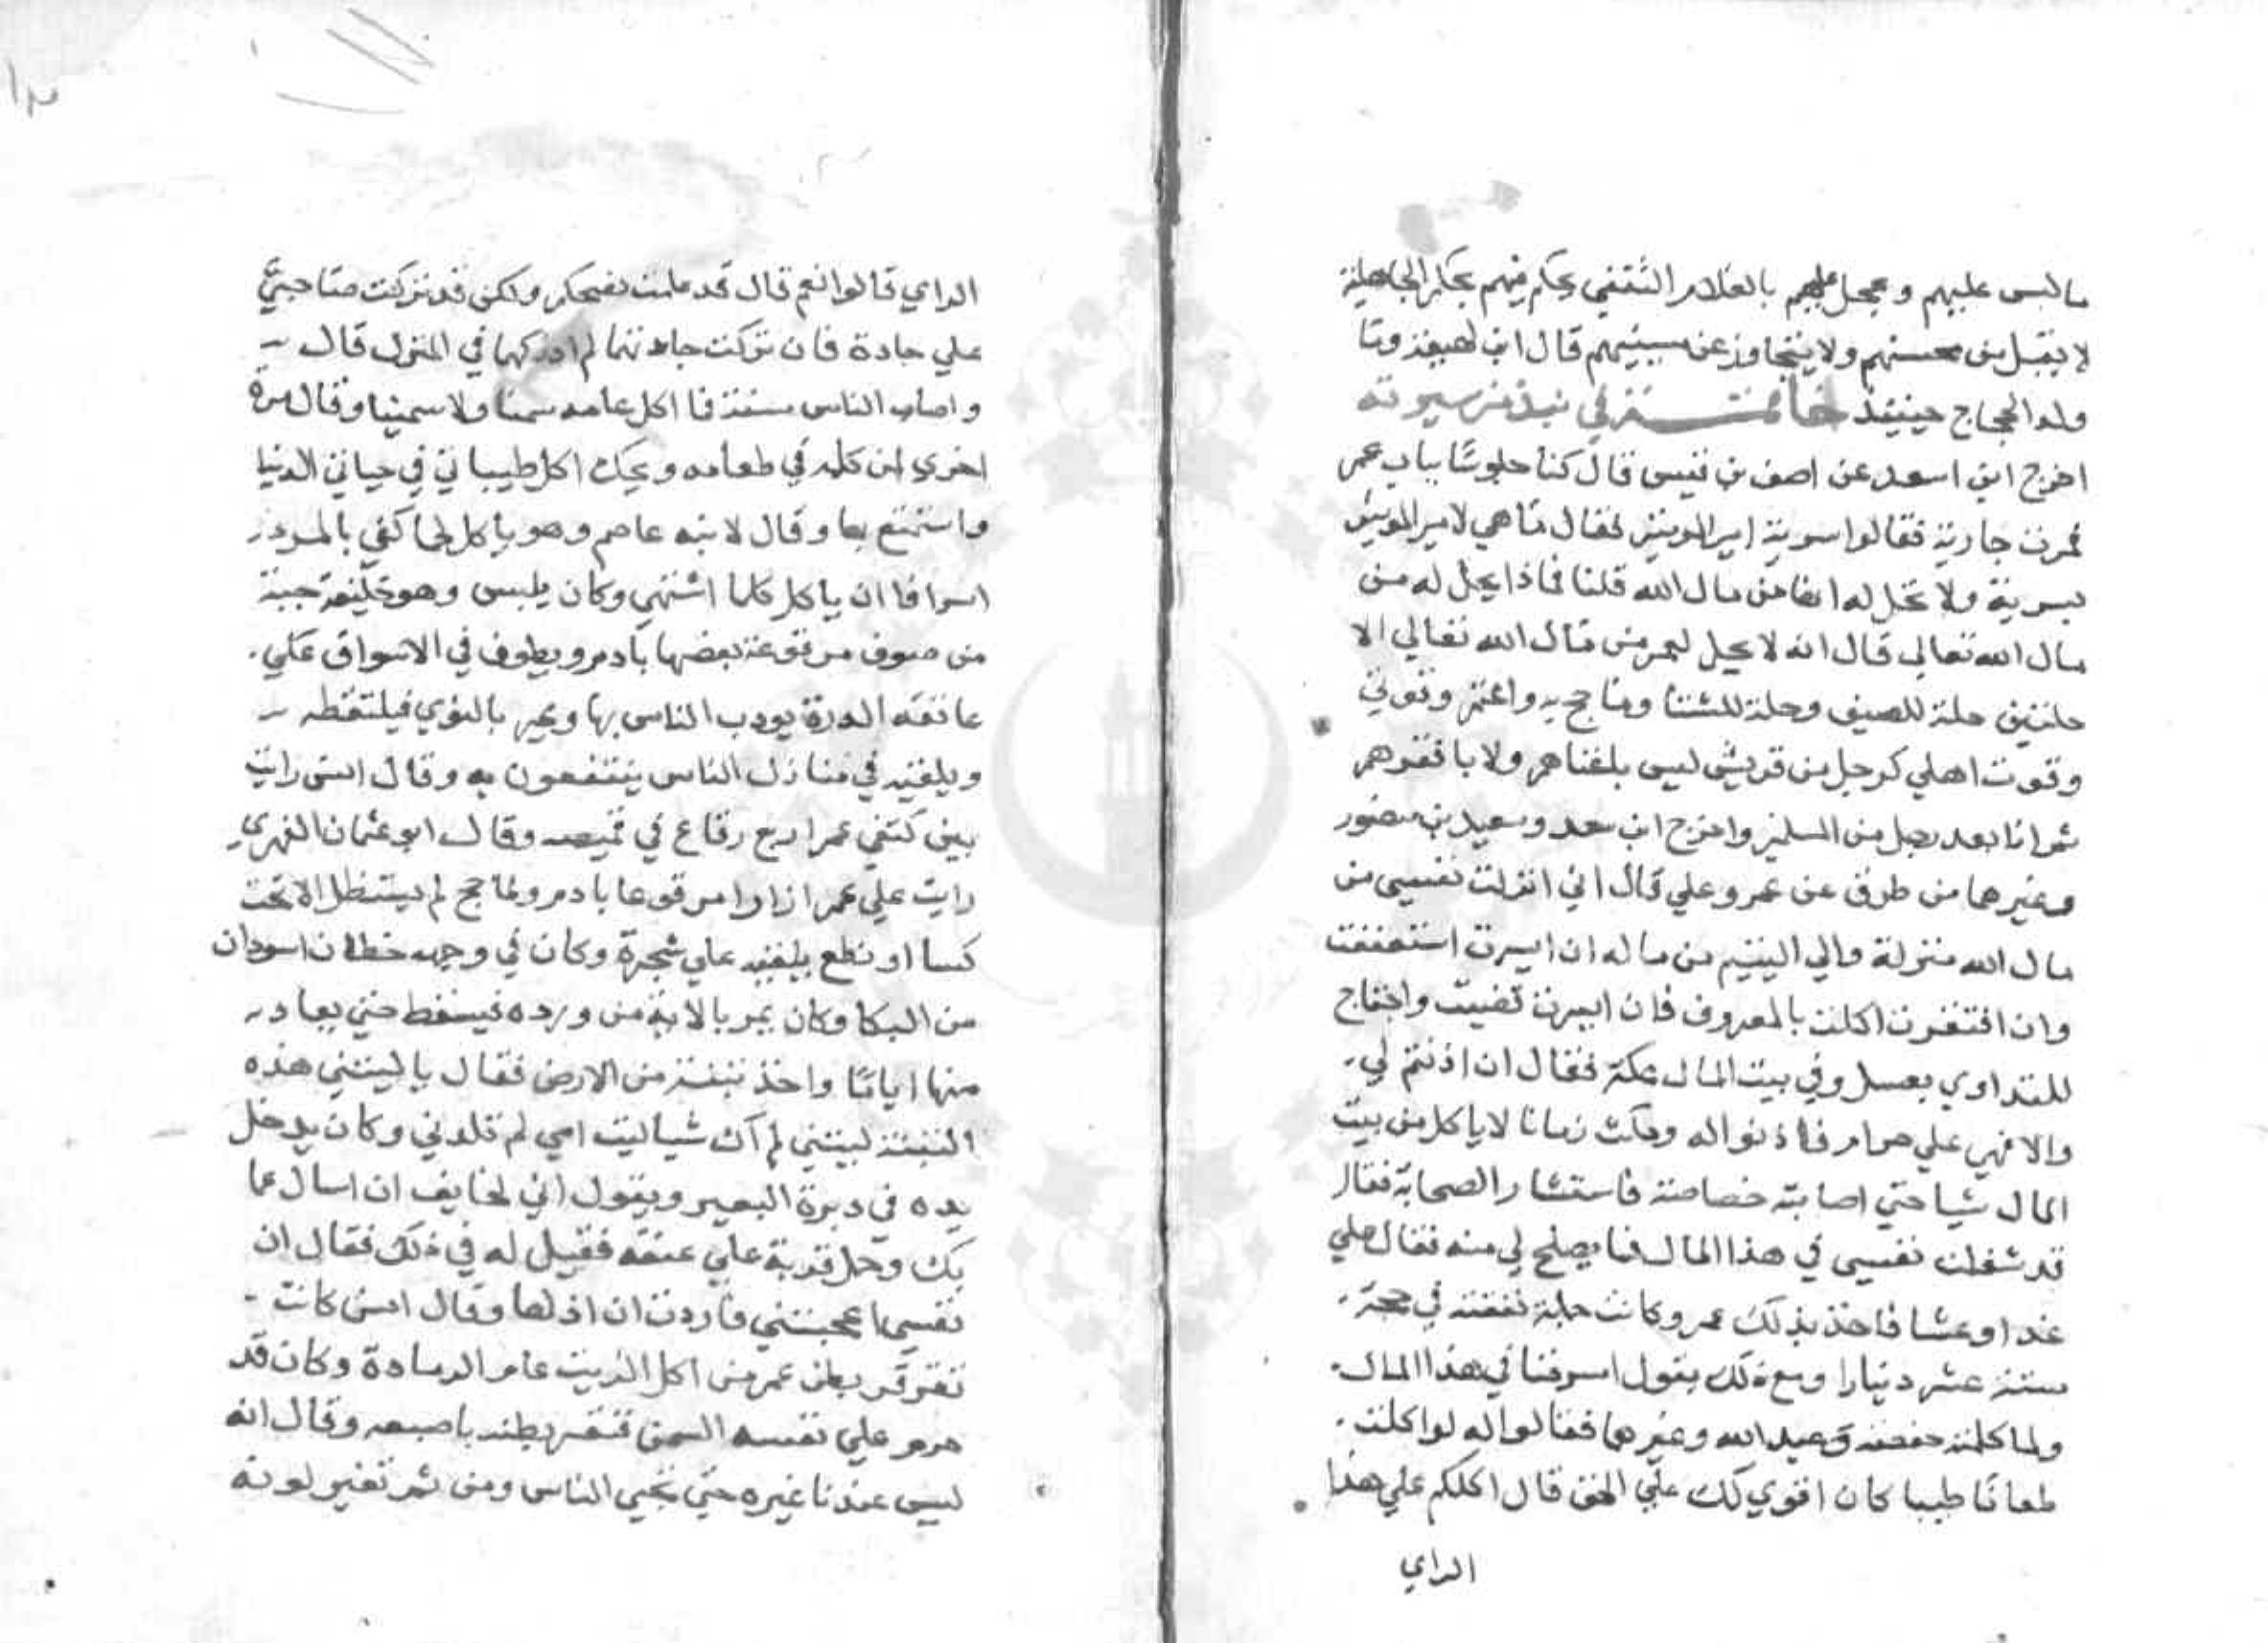 ما لبس عليهم وعجل عليهم بالغلام الثقفي يحكم فيهم بحكم الجاهلية
لا يقبل من محسنهم ولا يتجاوز عن مسيئهم قال ابن لهيعة وما
ولد الحجاج حينيذ خاتمة في نبذ من سيرته
اخرج ابن اسعد عن احنف بن قيس قال كنا جلوسا بباب عمر
فمرت جارية فقالوا سرية امير المومنين فقال ما هي لامير المومنين
بسرية ولا تحل له انها من مال الله قلنا فماذا يحل له من
مال الله تعالي قال انه لا يحل لعمر من مال الله تعالي الا
حلتين حلة للصيف وحلة للشتا وما حج به واعتمر وقوتي
وقوت اهلي كرجل من قريش ليس باغناهم ولا بافقرهم
ثم انا بعد رجل من المسلمين واخرج ابن سعد وسعيد بن منصور
وغيرهما من طرق عن عمر وعلي قال اني انزلت نفسي من
مال الله منزلة والي اليتيم من ماله ان ايسرت استعففت
وان افتقرت اكلت بالمعروف فان ايسرت قضيت واحتاج
للتداوي بعسل وفي بيت المال عكة فقال ان اذنتم لي
والا فهي علي حرام فاذنوا له ومكث زمانا لا ياكل من بيت
المال شيا حتي اصابته خصاصة فاستشار الصحابة فقال
قد شغلت نفسي في هذا المال فما يصلح لي منه فقال علي
غدا وعشا فاخذ بذلك عمر وكانت جملة نفقته في حجة
ستة عشر دينارا ومع ذلك يقول اسرفنا في هذا المال
ولما كلمته حفصة وعبد الله وغيرهما فقالوا له لو اكلت
طعاما طيبا كان اقوي لك علي الحق قال اكلكم علي هذا
الراي
١٣
الراي قالوا نعم قال قد علمت نصحكم ولكن قد تركت صاحبيَّ
علي جادة فان تركت جادتهما لم ادركهما في المنزل قال
واصاب الناس سنة فما اكل عامه سمنا ولا سمينا وقال مرة
اخري لمن كلمه في طعامه ويحك اكل طيباتي في حياتي الدنيا
واستمتع بها وقال لابنه عاصم وهو ياكل لحما كفي بالمرء
اسرافا ان ياكل كلما اشتهي وكان يلبس وهو خليفة جبة
من صوف مرقوعة بعضها بادم ويطوف في الاسواق علي
عاتقه الدرة يودب الناس بها ويمر بالنوي فيلتقطه
ويلقيه في منازل الناس ينتفعون به وقال انس رايت
بين كتفي عمر اربع رقاع في قميصه وقال ابو عثمان النهري
رايت علي عمر ازارا مرقوعا بادم ولما حج لم يستظل الا تحت
كسا او نطع يلقيه علي شجرة وكان في وجهه خطان اسودان
من البكا وكان يمر بالاية من ورده فيسقط حتي يعاد
منها اياما واخذ تبنة من الارض فقال يا ليتني هذه
التبنة ليتني لم اك شيا ليت امي لم تلدني وكان يدخل
يده في دبرة البعير ويقول اني لخايف ان اسال عما
بك وحمل قربة علي عنقه فقيل له في ذلك فقال ان
نفسي اعجبتني فاردت ان اذلها وقال انس كانت
تقرقر بطن عمر من اكل الزيت عام الرمادة وكان قد
حرم علي نفسه السمن فنقر بطنه باصبعه وقال انه
ليس عندنا غيره حتي يحيي الناس ومن ثم تغير لونه